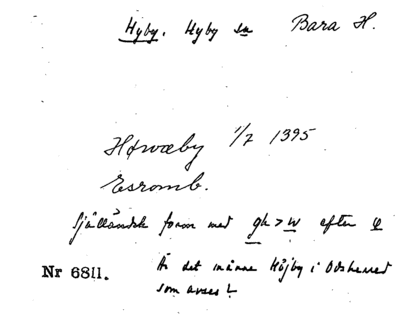 Hyby. Hyby sn Bara H.
Høwæby 1/7 1395
Esromb.
Själländsk form med gh > w efter ø
Är det månne Höjby i Odsherred
som avses?
Nr 6811.